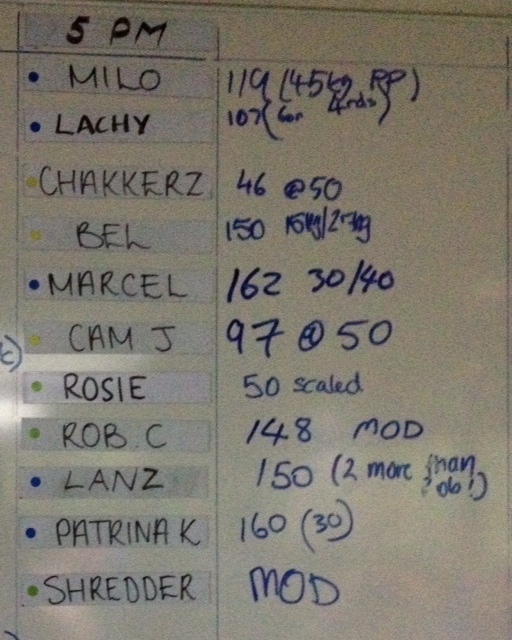 5 PM
MILO 119 (45kg PP)
LACHY 107 (for 4rds)
CHAKKERZ 46 @50
BEL 150 15kg/
MARCEL 162 30/40
CAM J 97 @ 50
ROSIE 50 scaled
ROB.C 148 MOD
LANZ 150 (2 more than
ob!)
PATRINA K 160 (30)
SHREDDER MOD